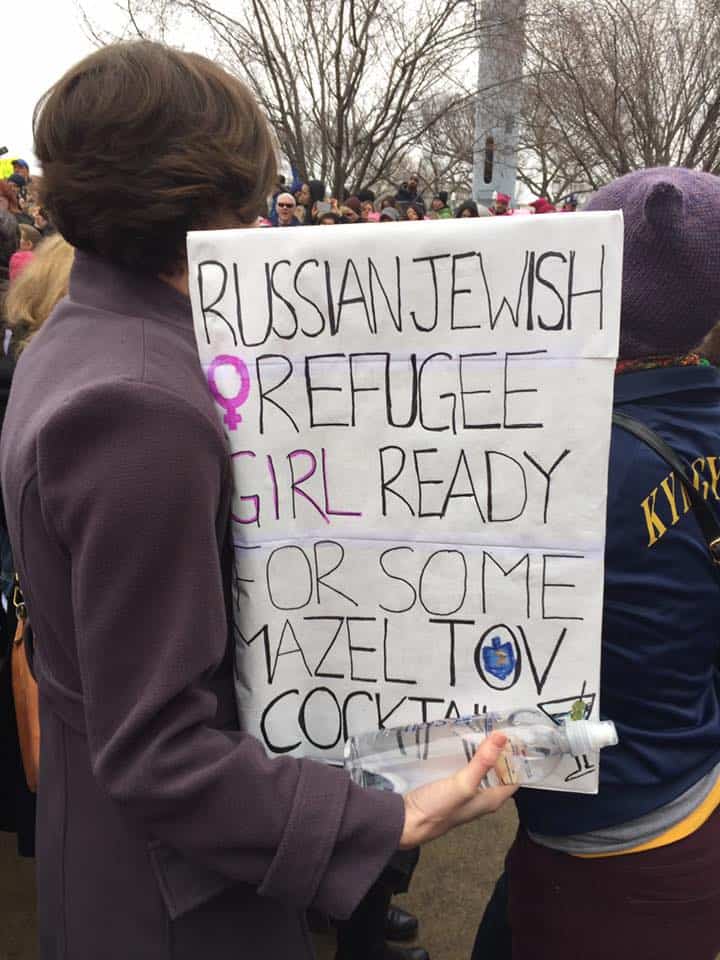 RUSSIAN JEWISH
♀ REFUGEE
GIRL READY
FOR SOME
MAZEL TOV
COCKTAIL